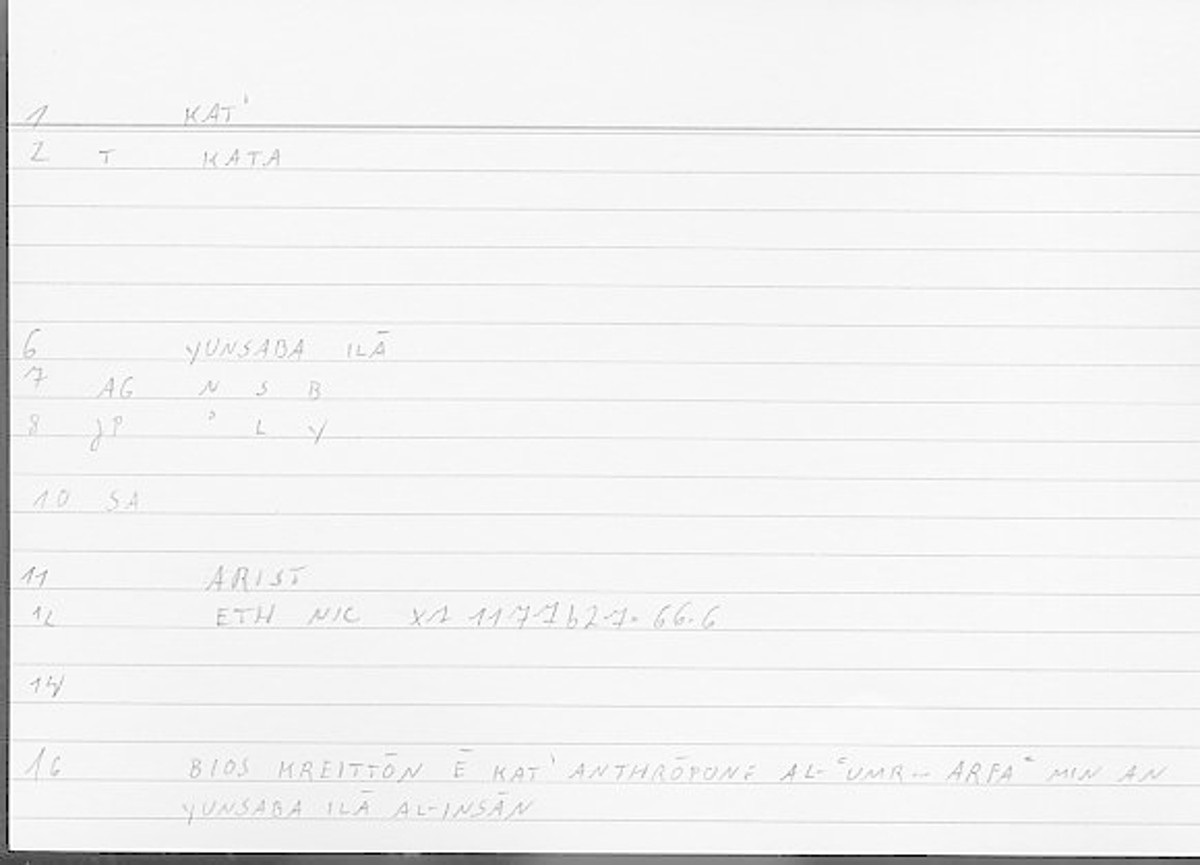 1 KAT'
2 T KATA
6 YUNSABA ILĀ
7 AG N S B
8 JP ʾ L Y
10 SA
11 ARIST
12 ETH NIC X1 1177b27. 66.6
14
16 BIOS KREITTŌN Ē KAT' ANTHRŌPONE AL-ʿUMR-- ARFAʿ MIN AN
YUNSABA ILĀ AL-INSĀN